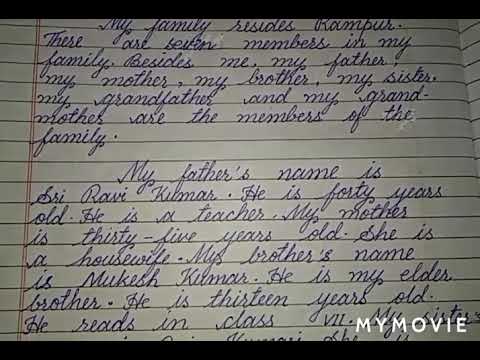 My family resides Rampur.
There are seven members in my
family. Besides me, my father,
my mother, my brother, my sister.
my grandfather and my grand-
mother are the members of the
family.
My father's name is
Sri Ravi Kumar. He is forty years
old. He is a teacher. My mother
is thirty-five years old. She is
a housewife. My brother's name
is Mukesh Kumar. He is my elder
brother. He is thirteen years old.
He reads in class VII. My sister's
Kumari She is
MYMOVIE